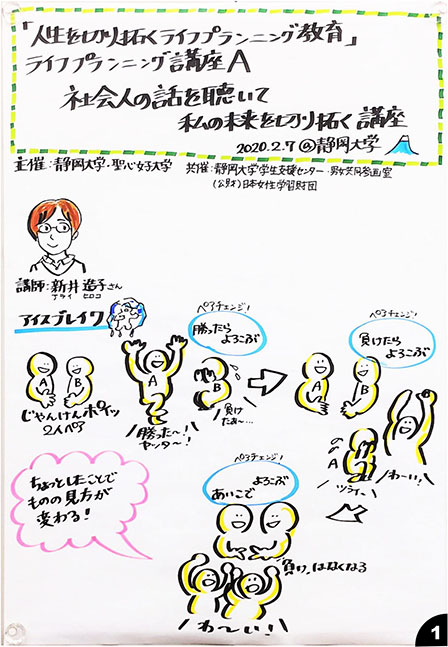 「人生を切り拓くライフプランニング教育」
ライフプランニング講座A
社会人の話を聴いて
私の未来を切り拓く講座
2020.2.7 @静岡大学
主催:静岡大学・聖心女子大学 共催:静岡大学学生支援センター・男女共同参画室
(公財)日本女性学習財団
講師:新井浩子さん
アライ ヒロコ
アイスブレイク
ペアチェンジ!
勝ったら
よろこぶ
ペアチェンジ!
負けたら
よろこぶ
A B
じゃんけんポイッ
2人ペア
A
勝った〜!
ヤッター!
B
負け
たぁ〜…
A B
A
ツライ〜
B
わ〜い!
ちょっとしたことで
ものの見方が
変わる!
ペアチェンジ!
あいこで よろこぶ
負け,はなくなる
わ〜い!
1